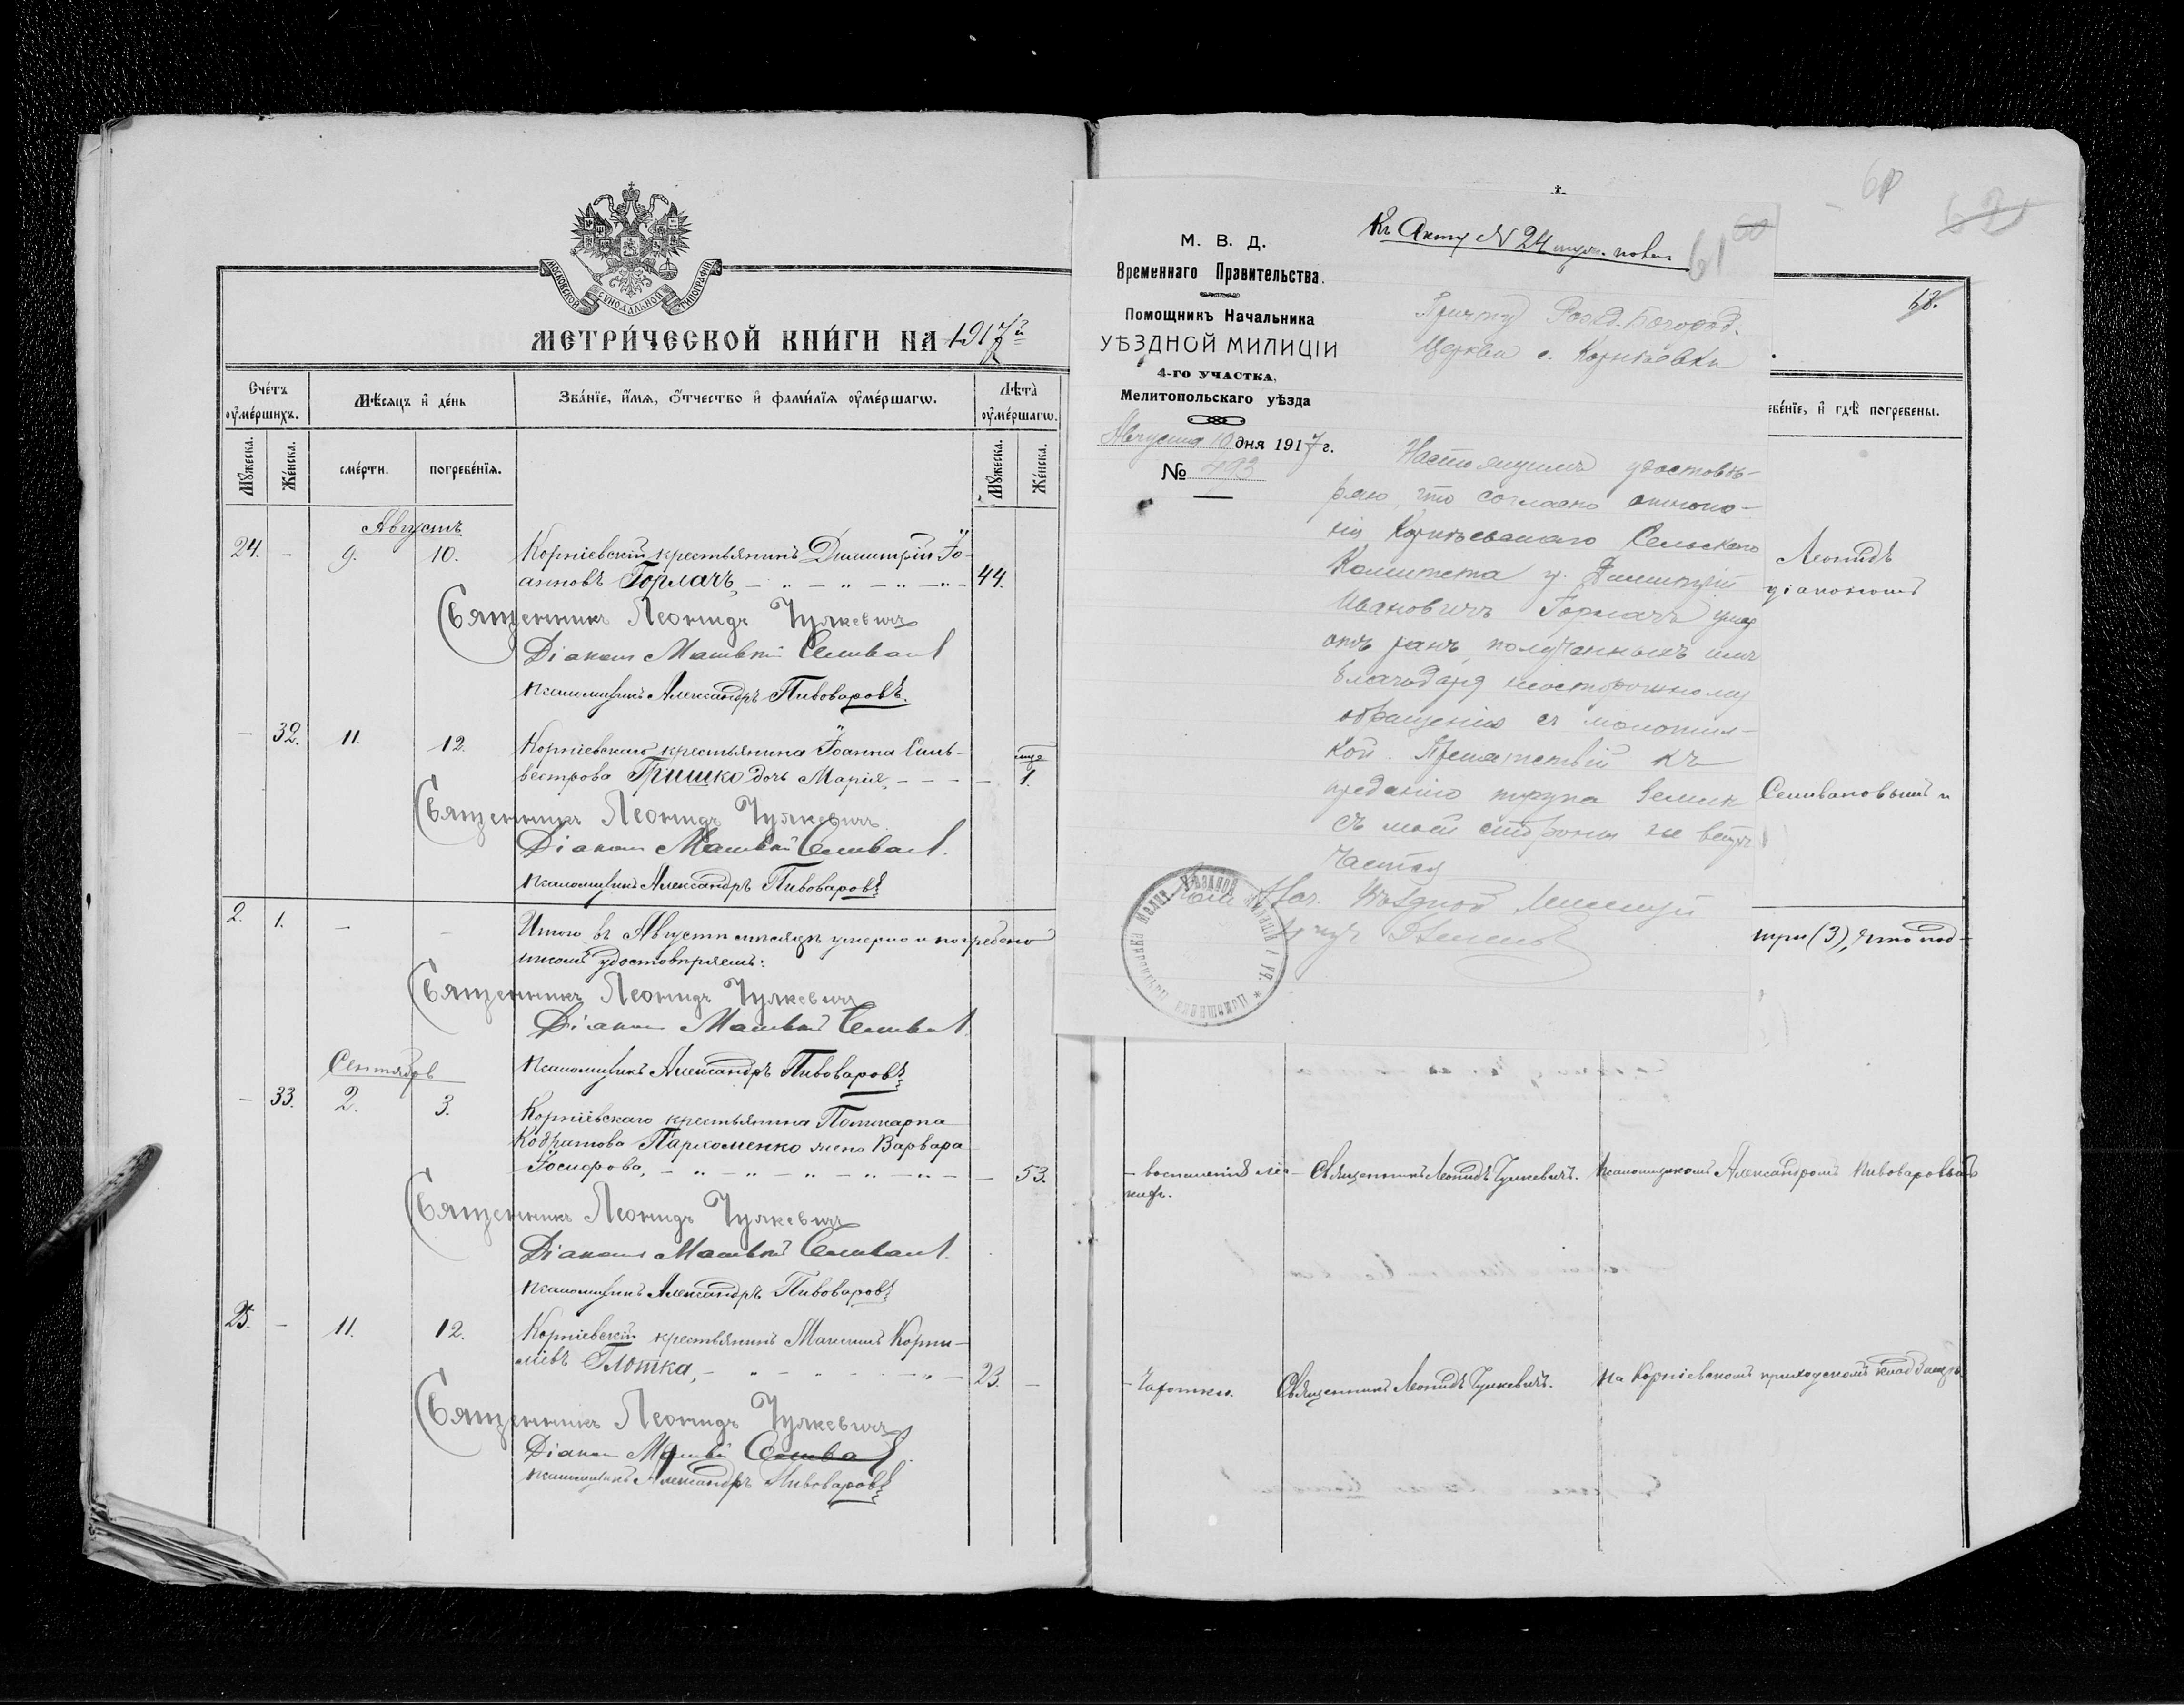 МОСКОВСКОЙ СУНОДАЛЬНОЙ ТИПОГРАФІИ
МЕТРИЧЕСКОЙ КНИГИ НА 1917 г.
Счетъ умершихъ.
Мѣсяцъ и день
Званіе, имя, отчество и фамилія умершаго.
Лѣта умершаго.
Мужеска.
Женска.
смерти.
погребенія.
Мужеска.
Женска.
Августъ
24. - 9. 10. Корніевскій крестьянинъ Димитрій Іо-
анновъ Горлачъ, 44.
Священникъ Леонидъ Чулкевичъ
Діаконъ Матвѣй Селиванов
Псаломщикъ Александръ Пивоваровъ.
- 32. 11. 12. Корніевскаго крестьянина Іоанна Силь-
вестрова Гришко дочь Марія, - 1.
Священникъ Леонидъ Чулкевичъ.
Діаконъ Матвѣй Селиванов.
Псаломщикъ Александръ Пивоваровъ
2. 1. - - Итого въ Августѣ мѣсяцѣ умерло и погребено
писомъ удостовѣряемъ:
Священникъ Леонидъ Чулкевичъ
Діаконъ Матвѣй Селиванов.
Псаломщикъ Александръ Пивоваровъ
Сентябрь
- 33. 2. 3. Корніевскаго крестьянина Поликарпа
Кодратова Пархоменко жена Варвара
Іосифова, - 53.
Священникъ Леонидъ Чулкевичъ
Діаконъ Матвѣй Селиванов.
Псаломщикъ Александръ Пивоваровъ
25. - 11. 12. Корніевскій крестьянинъ Максимъ Корни-
ліевъ Глотка, 23. -
Священникъ Леонидъ Чулкевичъ
Діаконъ Матвѣй Селиванов.
Псаломщикъ Александръ Пивоваровъ
М. В. Д.
Временнаго Правительства.
Помощникъ Начальника
УѢЗДНОЙ МИЛИЦІИ
4-го УЧАСТКА,
Мелитопольскаго уѣзда
Августа 10 дня 1917 г.
№ 493
Къ Акту № 24 муж. пола
61
Причту Рожд. Богород.
Церкви с. Корніевки
Настоящимъ удостовѣ-
ряю, что согласно отноше-
нія Корніевскаго Сельскаго
Комитета г. Димитрій
Ивановичъ Горлачъ умер
отъ ранъ, полученныхъ имъ
благодаря неосторожному
обращенію съ молотил-
кой. Препятствій къ
преданію трупа земли
съ моей стороны не встрѣ-
чается
Пом. Нач. Уѣздной Милиціи
68.
ебеніе, и гдѣ погребены.
Леонидъ
діакономъ
Селивановымъ и
три (3), что под-
- воспаленія лег-
кихъ.
Священникъ Леонидъ Чулкевичъ.
Псаломщикомъ Александромъ Пивоваровымъ
- Чахотки.
Священникъ Леонидъ Чулкевичъ.
На Корніевскомъ приходскомъ кладбищѣ.